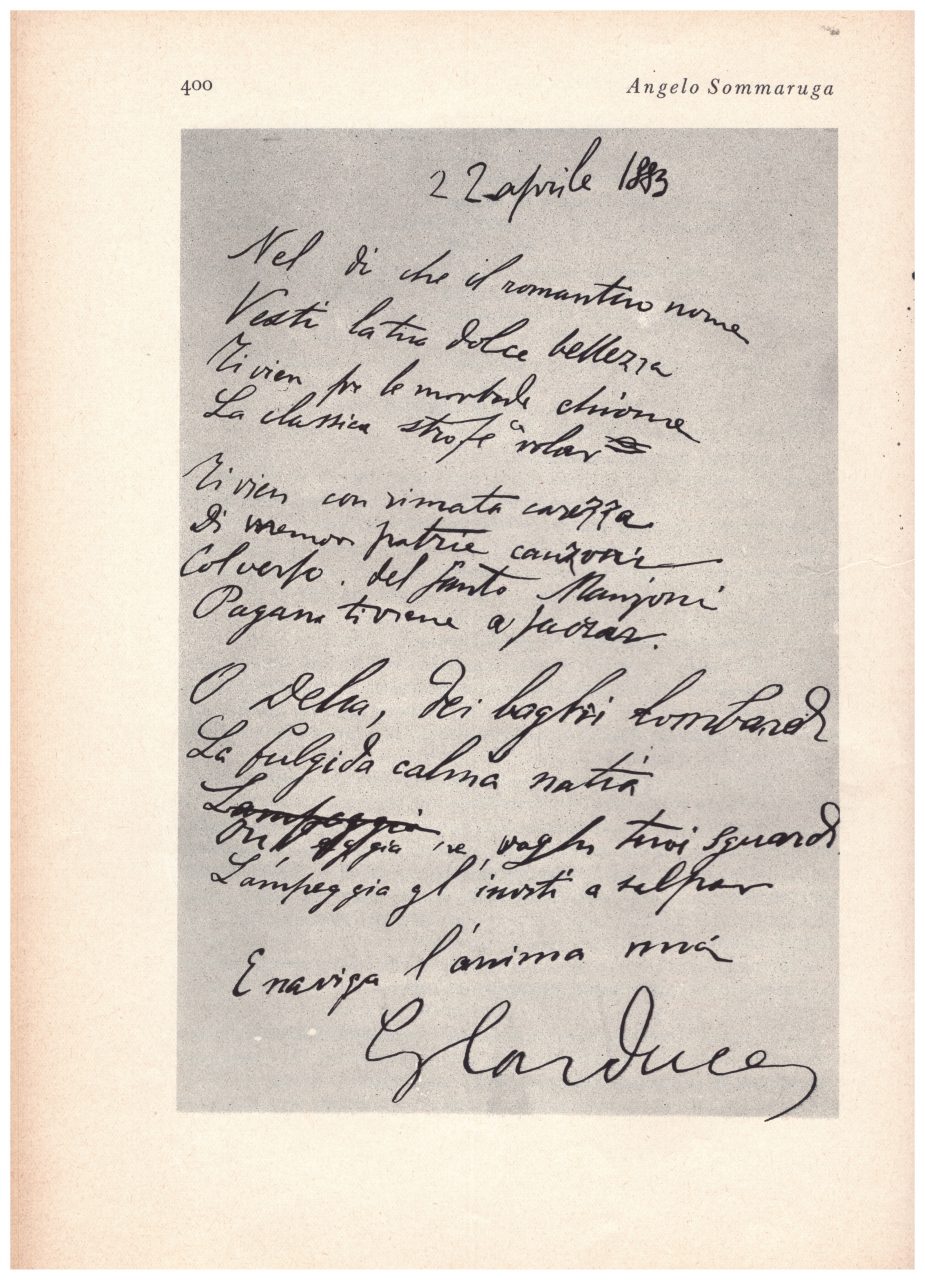 400 Angelo Sommaruga
22 aprile 1883
Nel dì che il romantico nome
Vestì la tua dolce bellezza
Ti vien fra le morbide chiome
La classica strofe a volar
Ti vien con rimata carezza
Di memori patrie canzoni
Col verso del santo Manzoni
Pagana ti viene a sacrar.
O Delia, dei laghi lombardi
La fulgida calma natia
Lampeggia
ne vaghi tuoi sguardi
Lampeggia gl'inviti a salpar
E naviga l'anima mia
G Carducci